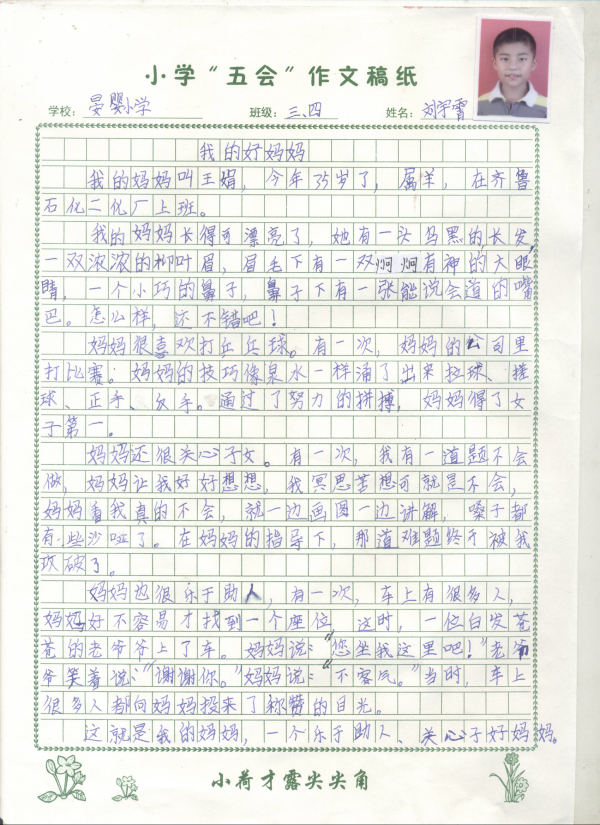 小学“五会”作文稿纸
学校: 晏婴小学 班级: 三、四 姓名: 刘宇霄
我的好妈妈
我的妈妈叫王娟，今年35岁了，属羊，在齐鲁
石化二化厂上班。
我的妈妈长得可漂亮了，她有一头乌黑的长发，
一双浓浓的柳叶眉，眉毛下有一双炯炯有神的大眼
睛，一个小巧的鼻子，鼻子下有一张能说会道的嘴
巴。怎么样，还不错吧！
妈妈很喜欢打乒乓球。有一次，妈妈的公司里
打比赛：妈妈的技巧像泉水一样涌了出来拉球、搓
球、正手、反手。通过了努力的拼搏，妈妈得了女
子第一。
妈妈还很关心子女。有一次，我有一道题不会
做，妈妈让我好好想想，我冥思苦想可就是不会，
妈妈看我真的不会，就一边画图一边讲解，嗓子都
有些沙哑了。在妈妈的指导下，那道难题终于被我
攻破了。
妈妈也很乐于助人，有一次，车上有很多人，
妈妈好不容易才找到一个座位，这时，一位白发苍
苍的老爷爷上了车。妈妈说：“您坐我这里吧！”老爷
爷笑着说：“谢谢你。”妈妈说：“不客气。”当时，车上
很多人都向妈妈投来了称赞的目光。
这就是我的妈妈，一个乐于助人、关心子好妈妈。
小荷才露尖尖角